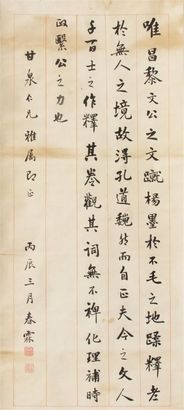 唯昌黎文公之文蹴楊墨於不毛之地蹂釋老
於無人之境故得孔道巍然而自正夫今之文人
千百士之作釋其卷觀其詞無不裨化理補時
政繫公之力也
甘泉仁兄雅属即正
丙辰三月春霖